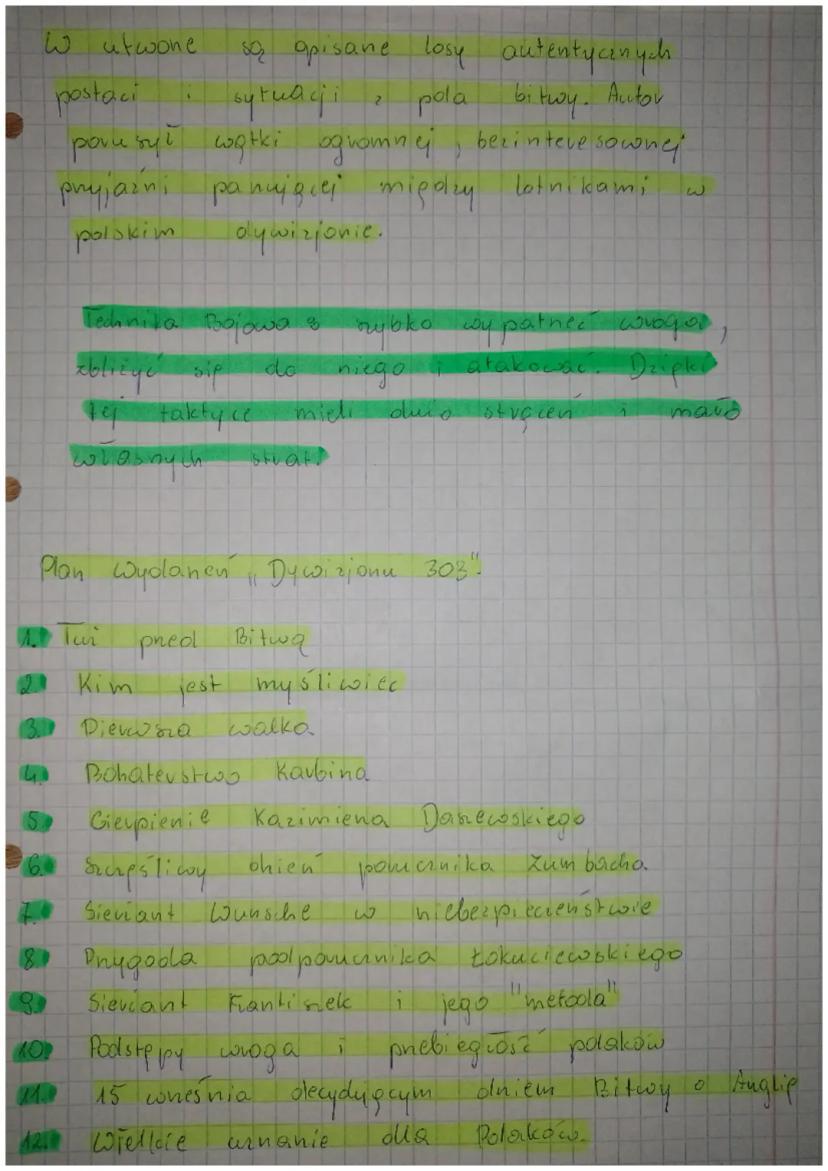 W utworze są opisane losy autentycznych
postaci i sytuacji z pola bitwy. Autor
poruszył wątki ogromnej, bezinteresownej
przyjaźni panującej między lotnikami w
polskim dywizjonie.
Technika Bojowa: szybko wypatrzeć wroga,
zbliżyć się do niego i atakować. Dzięki
tej taktyce mieli dużo strąceń i mało
własnych strat.
Plan wydarzeń „Dywizjonu 303".
1. Tuż przed Bitwą
2. Kim jest myśliwiec
3. Pierwsza walka.
4. Bohaterstwo Karbina
5. Cierpienie Kazimierza Daszewskiego
6. Szczęśliwy dzień porucznika Zumbacha.
7. Sierżant Wunsche w niebezpieczeństwie
8. Przygoda podporucznika Łokuciewskiego
9. Sierżant Frantiszek i jego "metoda"
10. Podstępy wroga i przebiegłość polaków
11. 15 września decydującym dniem Bitwy o Anglię
12. Wielkie uznanie dla Polaków.